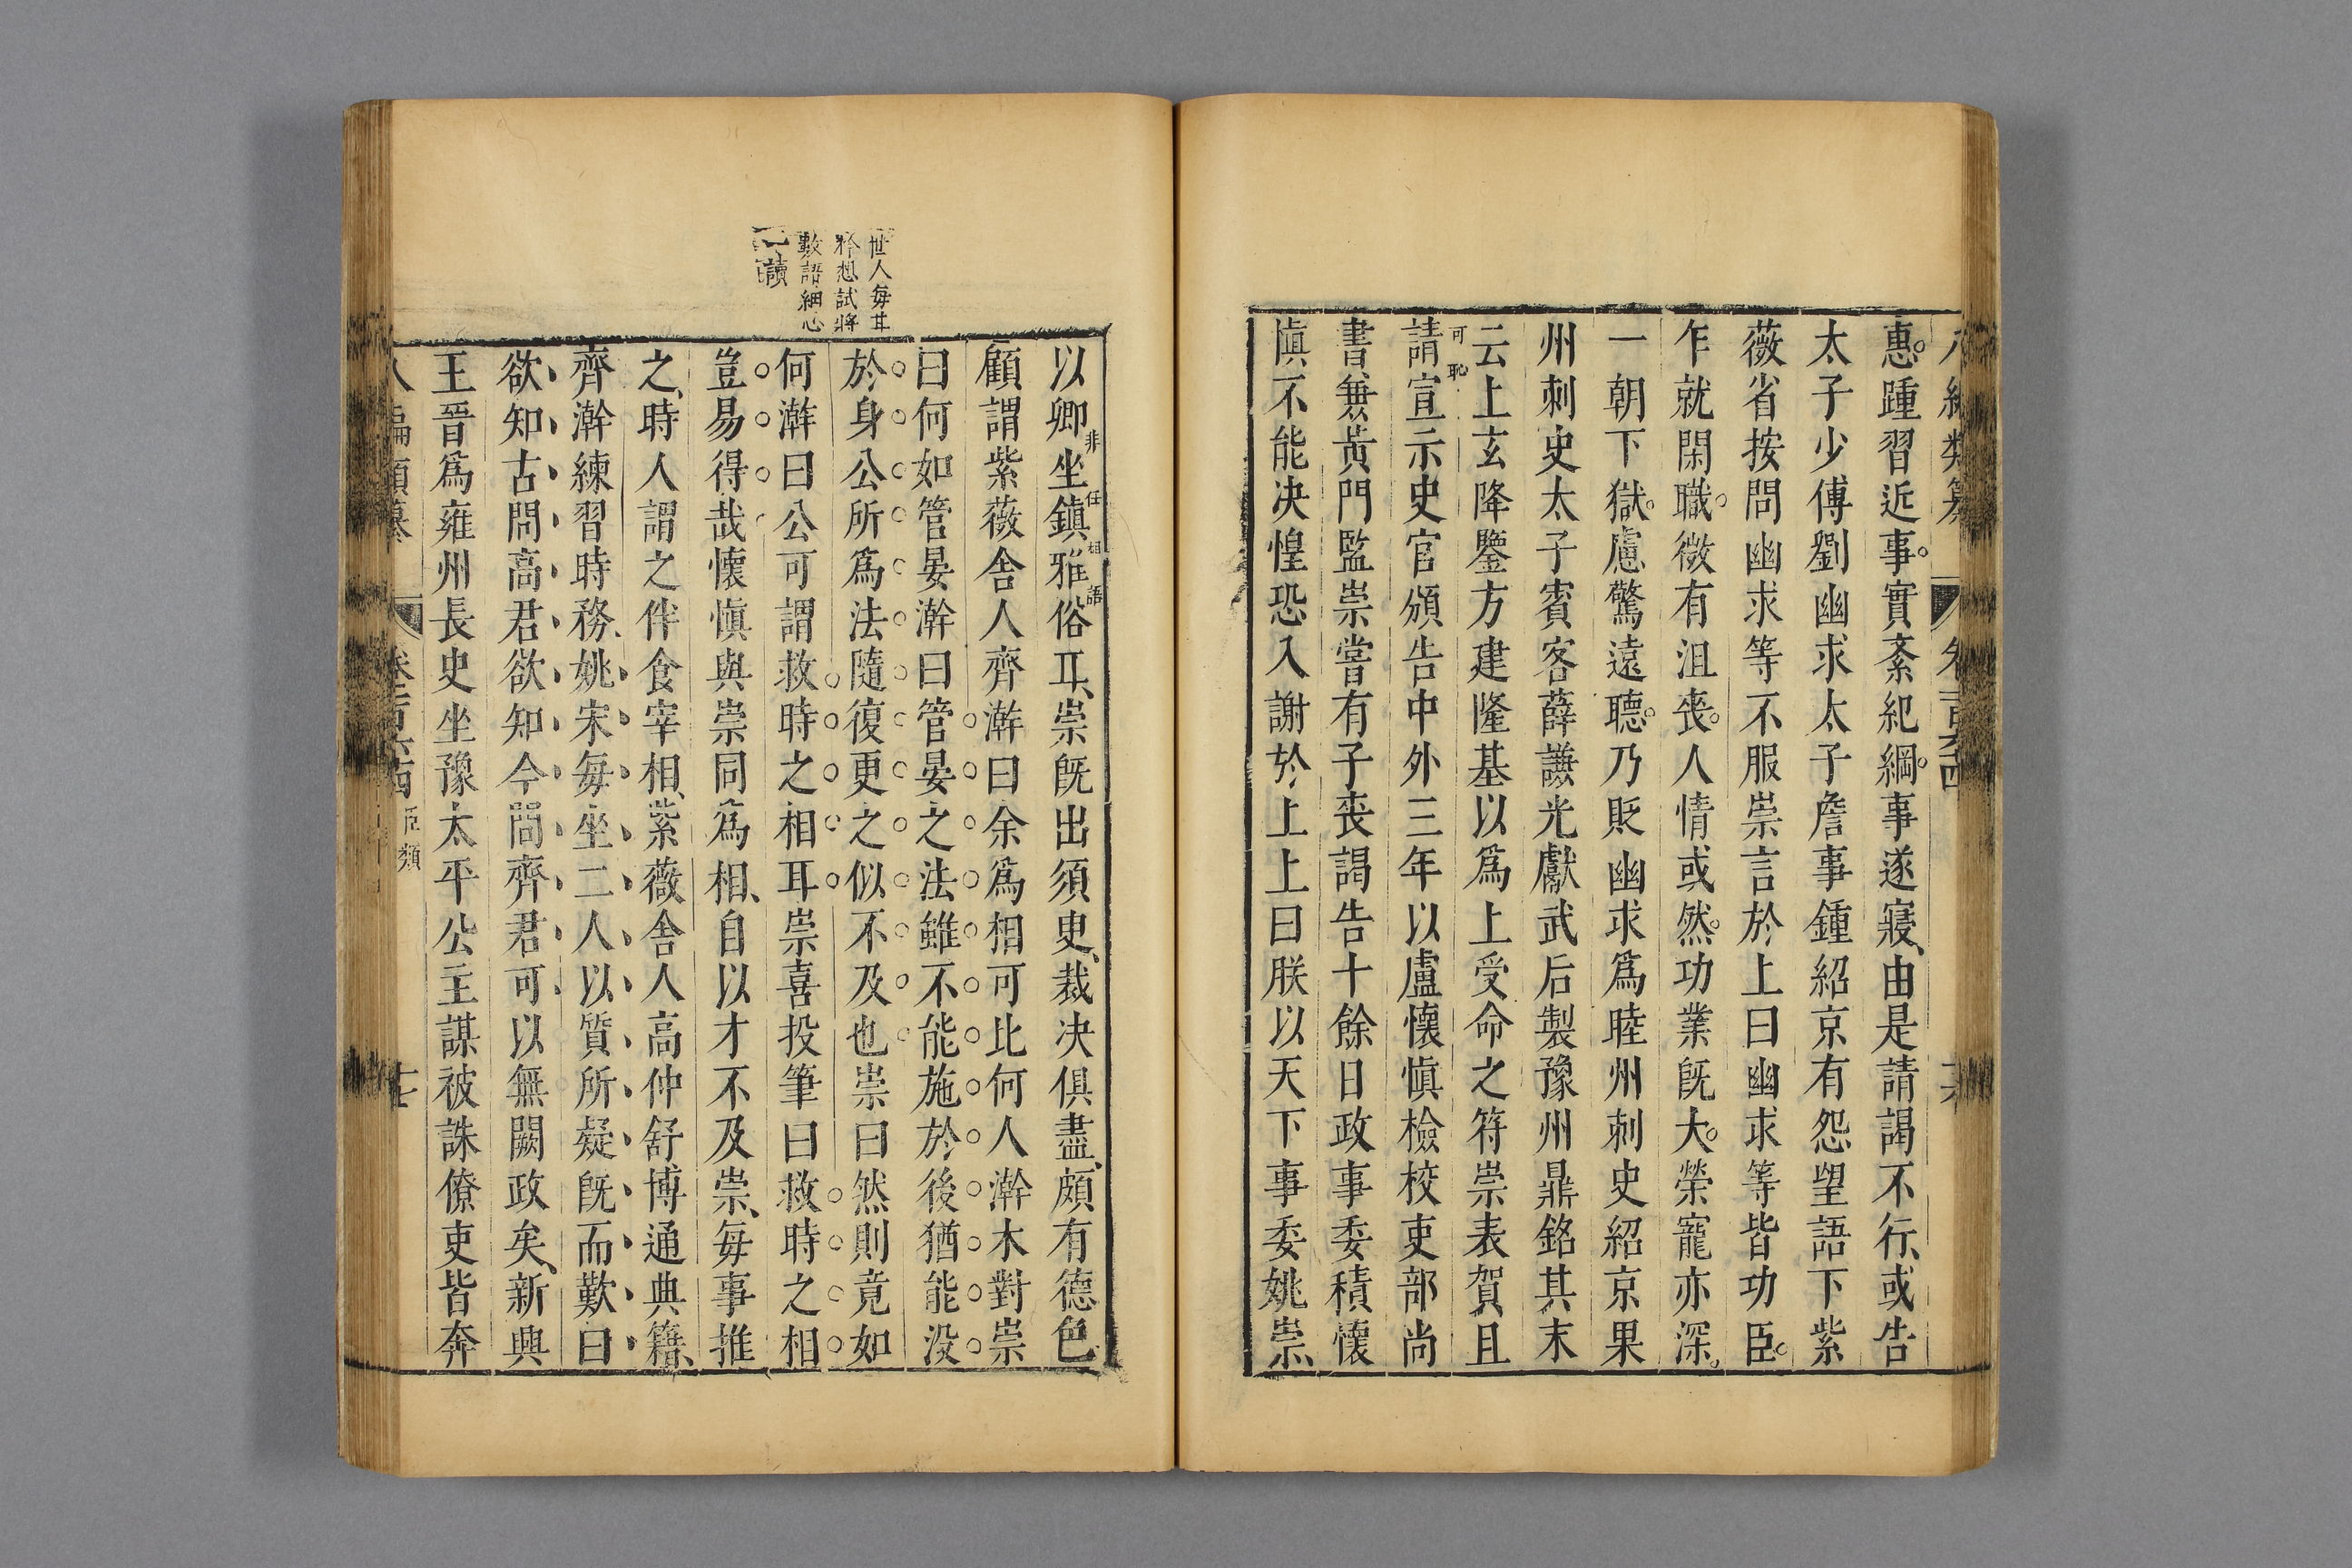 惠踵習近事實紊紀綱事遂寢由是請謁不行或告
太子少傅劉幽求太子詹事鍾紹京有怨望語下紫
薇省按問幽求等不服崇言於上曰幽求等皆功臣
乍就閑職微有沮喪人情或然功業旣大榮寵亦深
一朝下獄慮驚遠聽乃貶幽求爲睦州刺史紹京果
州刺史太子賓客薛謙光獻武后製豫州鼎銘其末
云上玄降鑒方建隆基以爲上受命之符崇表賀且
可恥
請宣示史官頒告中外三年以盧懷愼檢校吏部尚
書兼黃門監崇嘗有子喪謁告十餘日政事委積懷
愼不能決惶恐入謝於上上曰朕以天下事委姚崇
以卿坐鎮雅俗耳崇旣出須臾裁决俱盡頗有德色
非任相語
顧謂紫薇舍人齊澣曰余爲相可比何人澣未對崇
曰何如管晏澣曰管晏之法雖不能施於後猶能没
於身公所爲法隨復更之似不及也崇曰然則竟如
何澣曰公可謂救時之相耳崇喜投筆曰救時之相
豈易得哉懷愼與崇同爲相自以才不及崇每事推
之時人謂之伴食宰相紫薇舍人高仲舒博通典籍
齊澣練習時務姚宋每坐二人以質所疑旣而歎曰
欲知古問高君欲知今問齊君可以無闕政矣新興
王晉爲雍州長史坐豫太平公主謀被誅僚吏皆奔
世人每甘
將
數語細心
讀